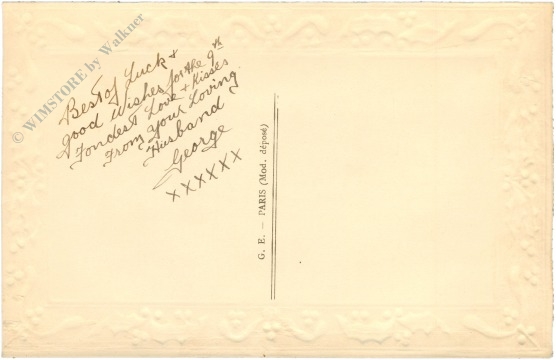 Best of Luck &
good Wishes for the 9th
Fondest Love + Kisses
From Your Loving
Husband
George
xxxxxx
G. E. — PARIS (Mod. déposé)
© WIMSTORE by Walkner